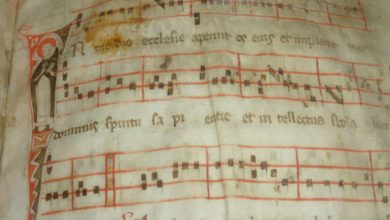 In medio ecclesie aperuit os eius et implevit eum
dominus spiritu sa pi entie et in tellectus stola